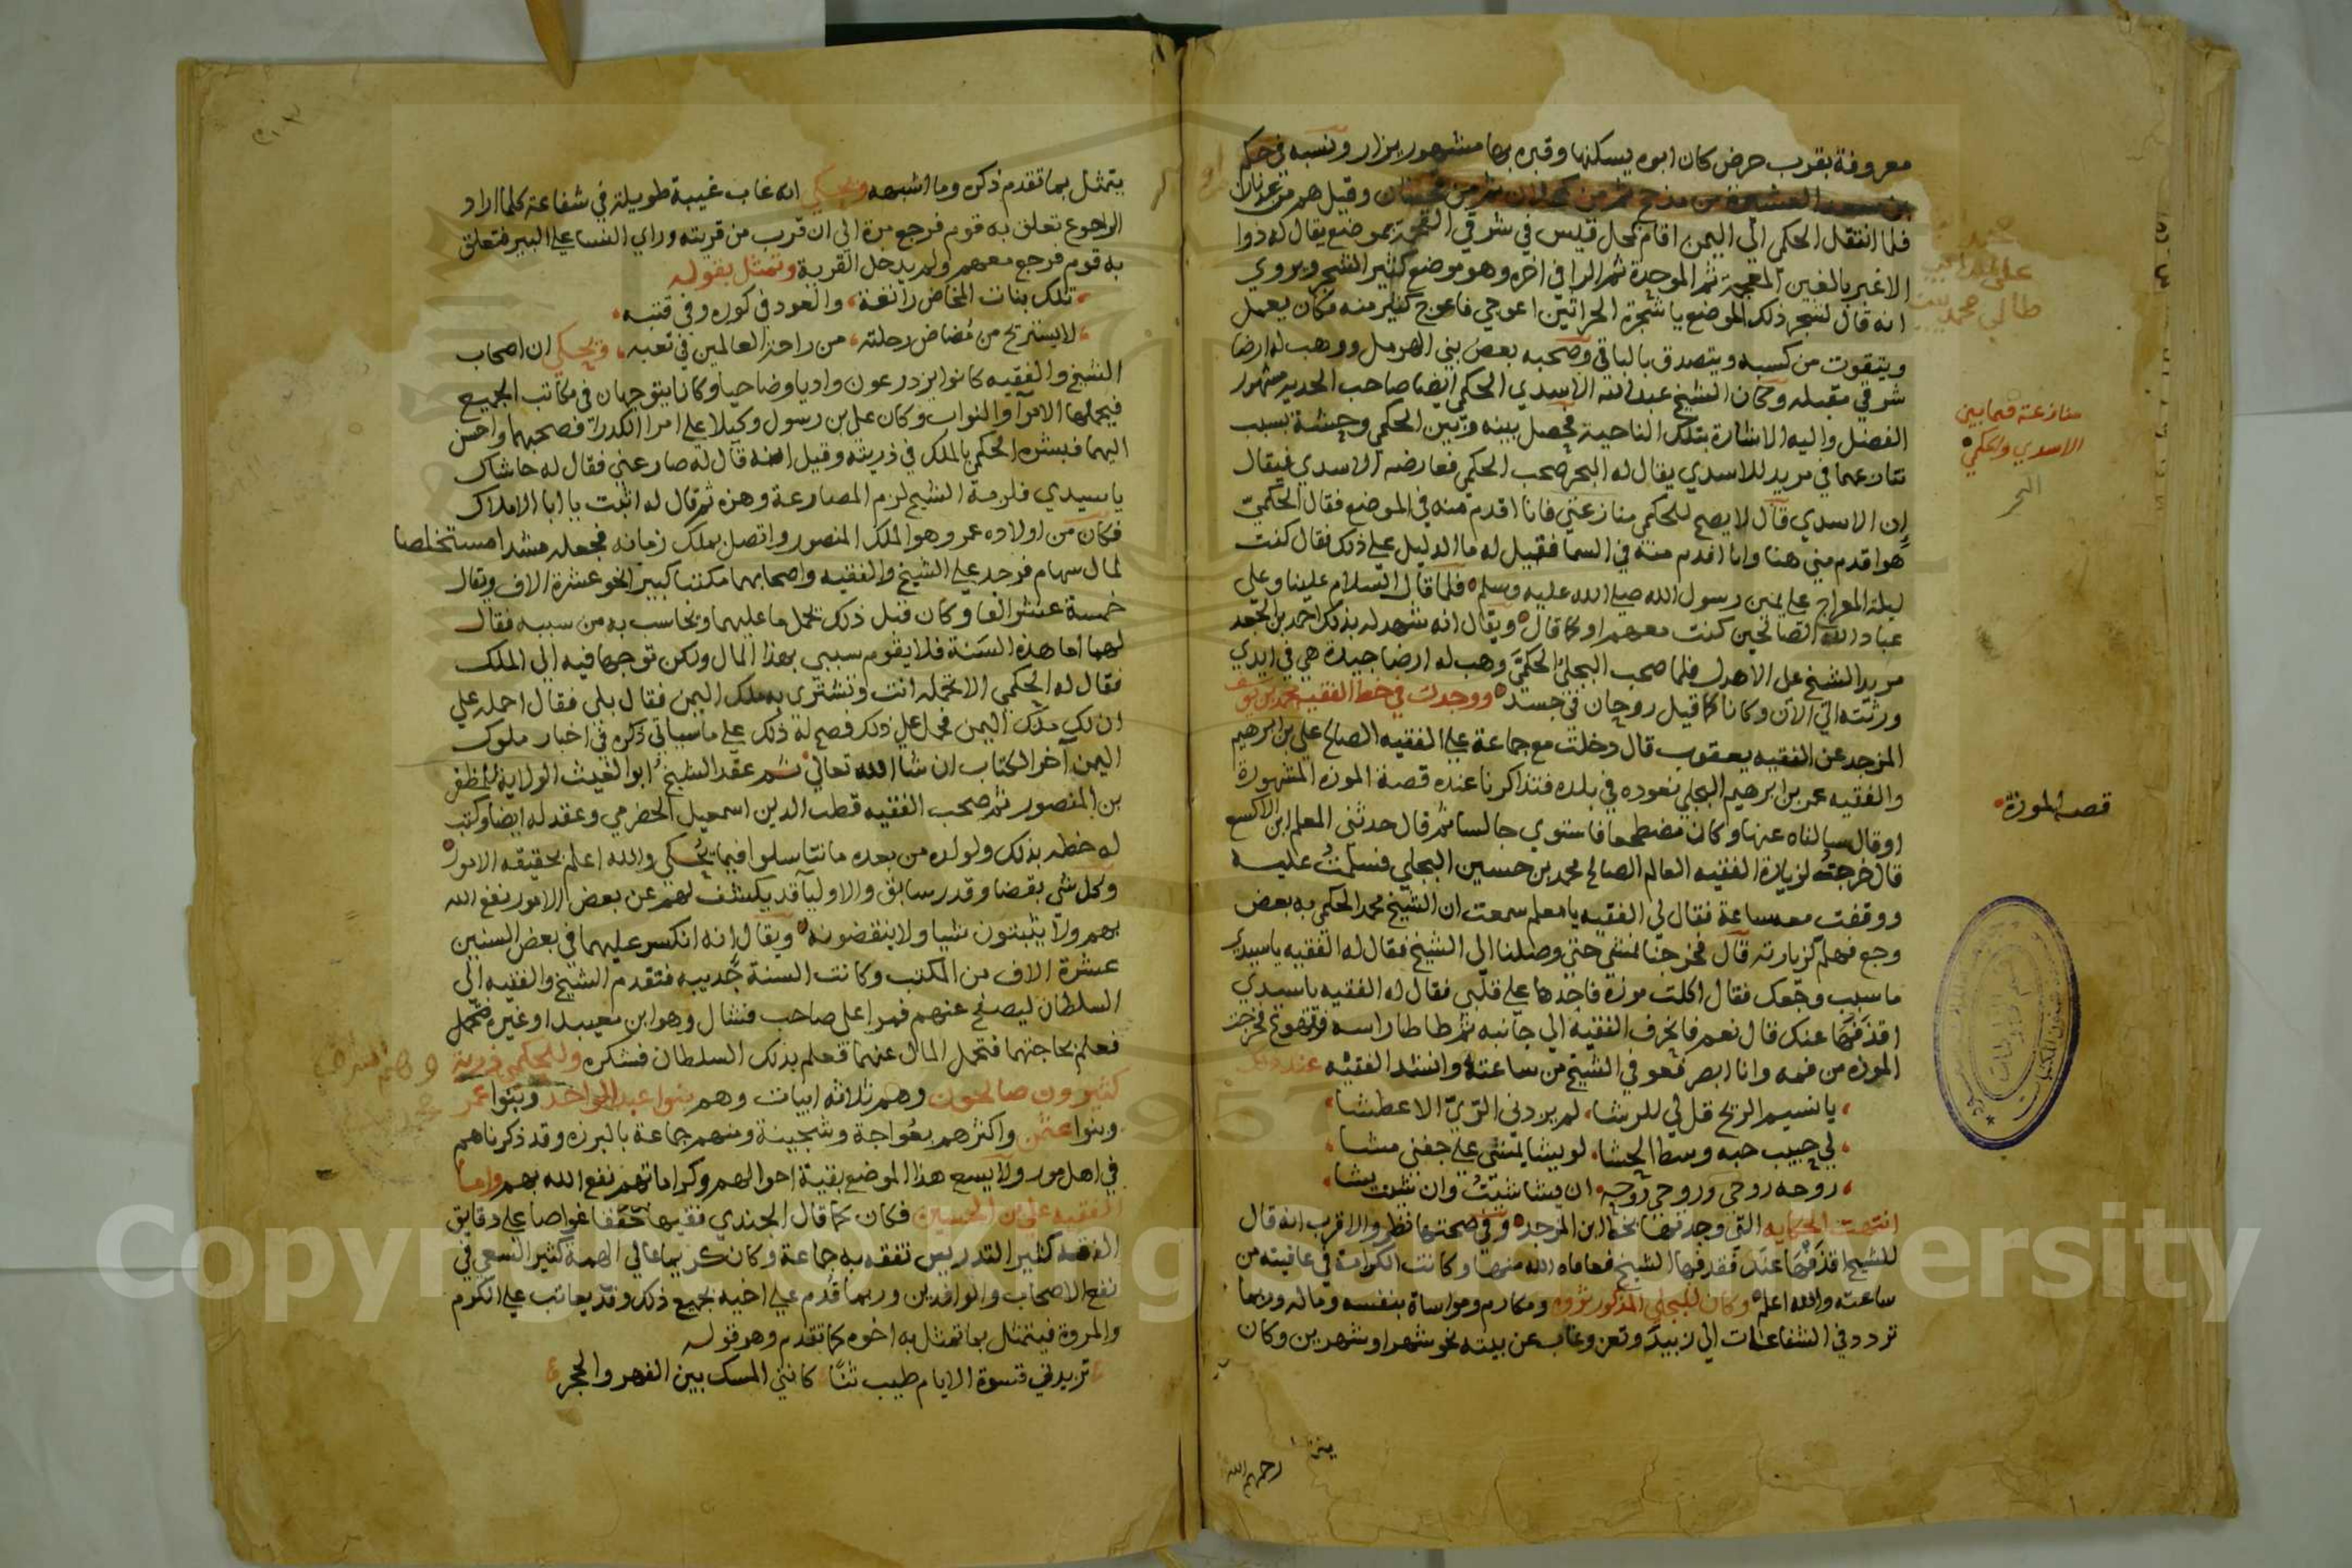 معروفة بقرب حرض كان ابوه يسكنها وقبره بها مشهور يزار ونسبه في حكم
بن سعد العشيرة من مذحج ثم من وقيل هم من
فلما انتقل الحكمي الي اليمن اقام بمحل قيس في شرقي بموضع يقال له ذوا
الاغبر بالغين المعجمة ثم الموحدة ثم الرا في اخره وهو موضع كثير الشجر ويروي
انه قال لشجر ذلك الموضع يا شجرة الحراثين اعوجي فاعوج كثير منه فكان يعمل
ويتقوت من كسبه ويتصدق بالباقي وصحبه بعض بني الهرمل ووهب له ارضا
شرقي مقبله وكان الشيخ عبد الله الاسدي الحكمي ايضا صاحب الحديه مشهور
الفضل واليه الاشارة بتلك الناحية فحصل بينه وبين الحكمي وحشة بسبب
تنازعهما في مريد للاسدي يقال له البحر صحب الحكمي فعارضه الاسدي فيقال
ان الاسدي قال لا يصح للحكمي منازعتي فانا اقدم منه في الموضع فقال الحكمي
هو اقدم مني هنا وانا اقدم منه في السما فقيل له ما الدليل علي ذلك فقال كنت
ليلة المعراج علي يمين رسول الله صلي الله عليه وسلم فلما قال السلام علينا وعلي
عباد الله الصالحين كنت معهم او كما قال ويقال انه شهد له بذلك احمد بن الجعد
مريد الشيخ علي الاهدل فلما صحب البجلي الحكمي وهب له ارضا جيدة هي في ايدي
ورثته الي الان وكانا كما قيل روحان في جسد ووجدت في خط الفقيه محمد بن يوسف
المزجد عن الفقيه يعقوب قال دخلت مع جماعة علي الفقيه الصالح علي بن ابرهيم
والفقيه عمر بن ابرهيم البجلي نعوده في بلده فتذاكرنا عنده قصة الموزة المشهورة
او قال سالناه عنها وكان مضطجعا فاستوي جالسا ثم قال حدثني المعلم ابن الاكسع
قال خرجت لزيارة الفقيه العالم الصالح محمد بن حسين البجلي فسلمت عليه
ووقفت معه ساعة فقال لي الفقيه يا معلم سمعت ان الشيخ محمد الحكمي به بعض
وجع فهلم لزيارته قال فخرجنا نمشي حتي وصلنا الي الشيخ فقال له الفقيه يا سيدي
ما سبب وجعك فقال اكلت موزة فاجدها علي قلبي فقال له الفقيه يا سيدي
اقذفها عنك قال نعم فانحرف الفقيه الي جانبه ثم طاطا راسه وتهوع فخرجت
الموزة من فمه وانا ابصر فعوفي الشيخ من ساعته وانشد الفقيه عند ذلك
يا نسيم الريح قل لي للرشا لم يزدني الري الا عطشا
لي حبيب حبه وسط الحشا لو يشا يمشي علي جفني مشا
روحه روحي وروحي روحه ان يشا شئت وان شئت يشا
انتهت الحكاية التي وجدتها بخط ابن المزجد وفي صحتها نظر والاقرب انه قال
للشيخ اقذفها عنك فقذفها الشيخ فعافاه الله منها وكانت الكرامة في عافيته من
ساعته والله اعلم وكان للبجلي المذكور ثروة ومكارم ومواساة بنفسه وماله وربما
تردد في الشفاعات الي زبيد وتعز وغاب عن بيته نحو شهر او شهرين وكان
منازعة فيما بين
الاسدي والحكمي
قصة الموزة
رحمهم الله
يتمثل بما تقدم ذكره وما اشبهه ويحكي انه غاب غيبة طويلة في شفاعة كلما اراد
الرجوع تعلق به قوم فرجع مرة الي ان قرب من قريته وراي النسا علي البير فتعلق
به قوم فرجع معهم ولم يدخل القرية وتمثل بقوله
تلك بنات المخاض راتعة والعود في كوره وفي قتبه
لا يستريح من مضاض رحلته من راحة العالمين في تعبه ويحكي ان اصحاب
الشيخ والفقيه كانوا يزدرعون واديا وضاحيا وكانا يتوجهان في مكاتب الجميع
فيحملها الامرآ والنواب وكان علي بن رسول وكيلا علي امرا الكدرا فصحبهما واحسن
اليهما فبشره الحكمي بالملك في ذريته وقيل انه قال له صارعني فقال له حاشاك
يا سيدي فلزمه الشيخ لزم المصارعة وهزه ثم قال له اثبت يا ابا الاملاك
فكان من اولاده عمر وهو الملك المنصور واتصل بملك زمانه فجعله مشدا مستخلصا
لمال سهام فوجد علي الشيخ والفقيه واصحابهما مكتبا كبيرا نحو عشرة الاف ويقال
خمسة عشر الفا وكان قبل ذلك يحمل ما عليهما ويحاسب به من سببه فقال
لهما اما هذه السنة فلا يقوم سببي بهذا المال ولكن توجها فيه الي الملك
فقال له الحكمي الا تحمله انت وتشتري به ملك اليمن فقال بلي فقال احمله علي
ان لك ملك اليمن فحمل علي ذلك فصح له ذلك علي ما سياتي ذكره في اخبار ملوك
اليمن آخر الكتاب ان شا الله تعالي ثم عقد الشيخ ابو الغيث الولاية للمظفر
بن المنصور ثم صحب الفقيه قطب الدين اسمعيل الحضرمي وعقد له ايضا وكتب
له خطه بذلك ولولده من بعده ما تناسلوا فيما يحكي والله اعلم بحقيقة الامور
وكل شي بقضا وقدر سابق والاوليآ قد يكشف لهم عن بعض الامور نفع الله
بهم ولا يثبتون شيا ولا ينقضونه ويقال انه انكسر عليهما في بعض السنين
عشرة الاف من المكتب وكانت السنة جديبه فتقدم الشيخ والفقيه الي
السلطان ليصفح عنهم فمرا علي صاحب فشال وهو ابن معيبد او غيره
فعلم بحاجتهما فتحمل المال عنهما فعلم بذلك السلطان فشكره وللحكمي ذرية
كثيرون صالحون وهم ثلاثة ابيات وهم بنوا عبد الواحد وبنوا عمر
وبنوا عثمن واكثرهم بعواجة وشجينة ومنهم جماعة بالبرزه وقد ذكرناهم
في اهل مور ولا يسع هذا الموضع بقية احوالهم وكراماتهم نفع الله بهم واما
الفقيه علي بن الحسين فكان كما قال الجندي فقيها محققا غواصا علي دقايق
الفقه كثير التدريس تفقه به جماعة وكان كريما عالي الهمة كثير السعي في
نفع الاصحاب والوافدين وربما قدم علي اخيه بجميع ذلك وقد يعاتب علي الكرم
والمروة فيتمثل بما تمثل به اخوه كما تقدم وهو قوله
تزيدني قسوة الايام طيب ثنا كانني المسك بين الفهر والحجر
Copyright © King Saud University
1957